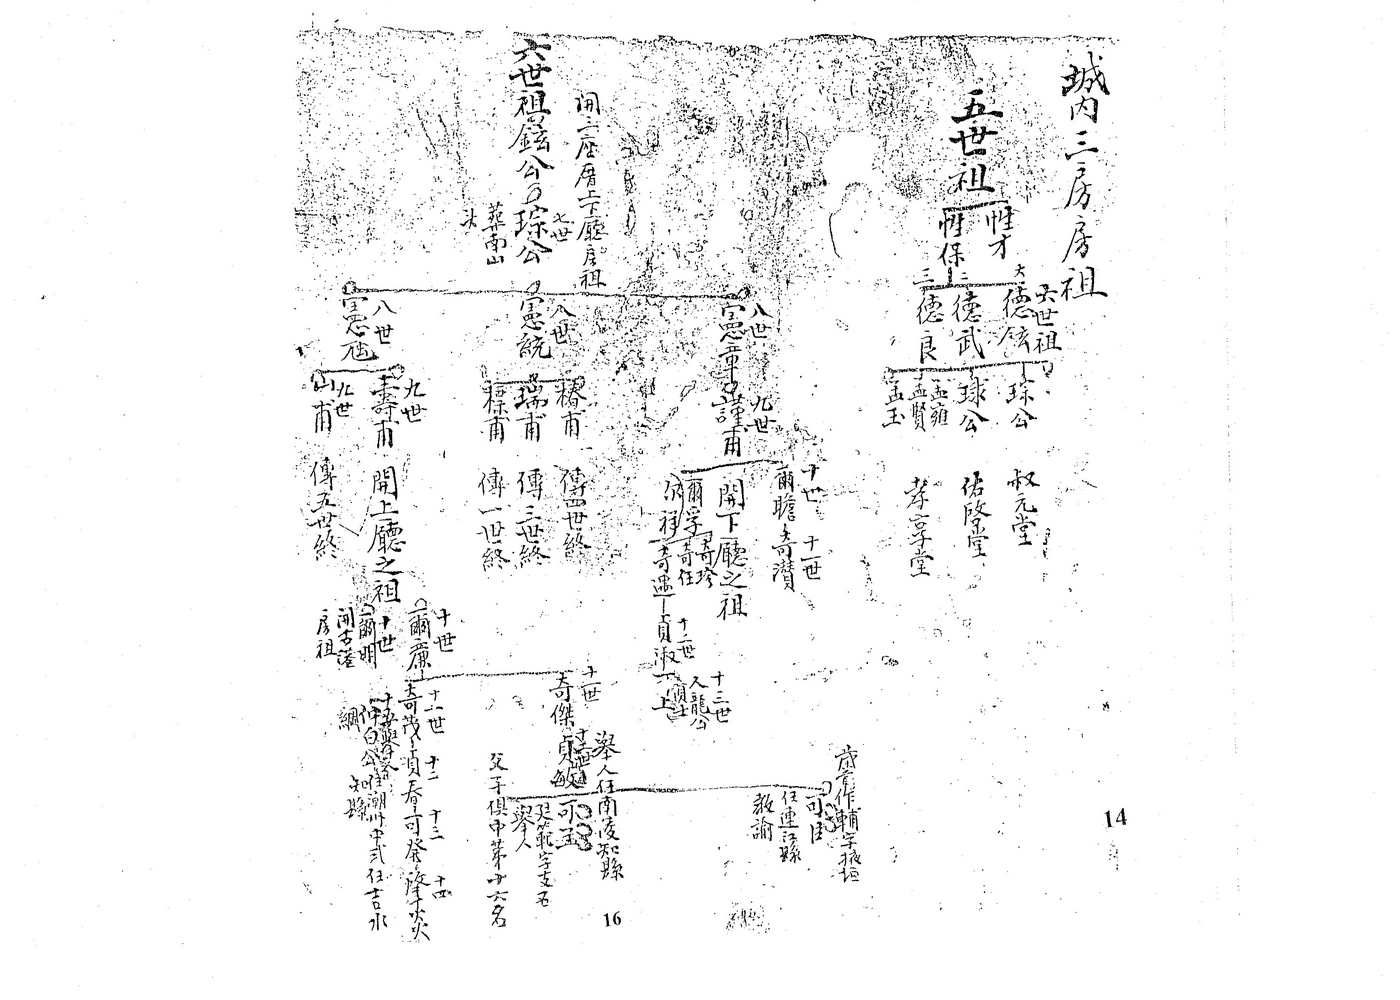 城內三房房祖
五世祖
惟才
惟保
六世祖
大 德鉉
二 德武
三 德良
琮公
球公
孟雍
孟賢
孟玉
叔元堂
佑啟堂
孝享堂
14
開三座厝上下廳房祖
六世祖鉉公
七世
琮公
葬南山
八世
憲章
八世
憲統
八世
憲
九世
謹甫
椿甫
瑞甫
標甫
九世
壽甫
九世
山甫
十世
爾瞻
十一世
奇瓚
開下廳之祖
爾孚
奇珍
奇任
祥
奇遇
十二世
貞淑
十三世
人龍公
上
傳四世終
傳三世終
傳一世終
開上廳之祖
傳五世終
十世
爾廉
十世
爾明
開古港
房祖
十一世
奇傑
貞敏
舉人任南陵知縣
十一世
奇茂
十二
貞春
十三
可發
十四
仲白公
知縣
歲貢作輔字振垣
任連江縣
教諭
廷範字支百
舉人
父子俱中第廿六名
16